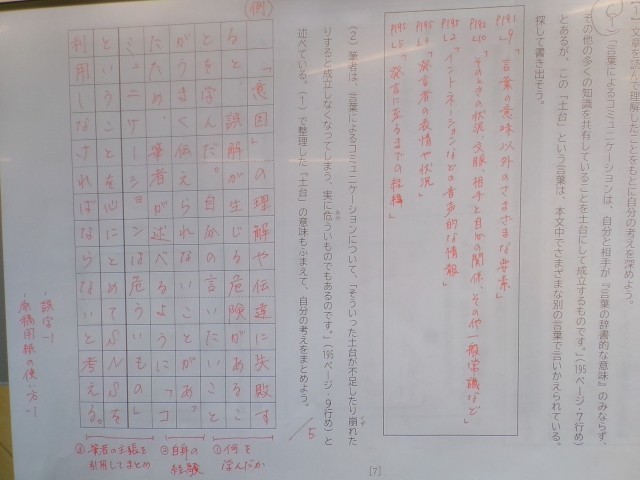 文章を読んで理解したことをもとに自分の考えを深めよう。
「言葉によるコミュニケーションは、自分と相手が『言葉の辞書的な意味』のみならず、
その他の多くの知識を共有していることを土台にして成立するものです。」(195ページ・7行め)
とあるが、この「土台」という言葉は、本文中でさまざまな別の言葉で言いかえられている。
探して書き出そう。
P191 L9「言葉の意味以外のさまざまな要素」
L10「そのときの状況、文脈、相手と自分の関係、その他一般常識など」
P195 L2「イントネーションなどの音声的な情報」
「発言者の表情や状況」
P195 L5「発言に至るまでの経緯」
(2) 筆者は、言葉によるコミュニケーションについて、「そういった土台が不足したり崩れた
りすると成立しなくなってしまう、実に危ういものでもあるのです。」(195ページ・9行め)と
述べている。(1)で整理した「土台」の意味もふまえて、自分の考えをまとめよう。
/5
(例)
「意図」の理解や伝達に失敗す
る誤解が生じる危険があるこ
とを学んだ自分の言いたいこと
がうまく伝えられないことがあっ
たため筆者が述べるように「コ
ミュニケーションは危ういもの」
ということを心にとめてSNSを
利用しなければならないと考える。
①何を学んだか
②自身の経験
③筆者の主張を引用してまとめ
・誤字-1
・原稿用紙の使い方-1
[7]